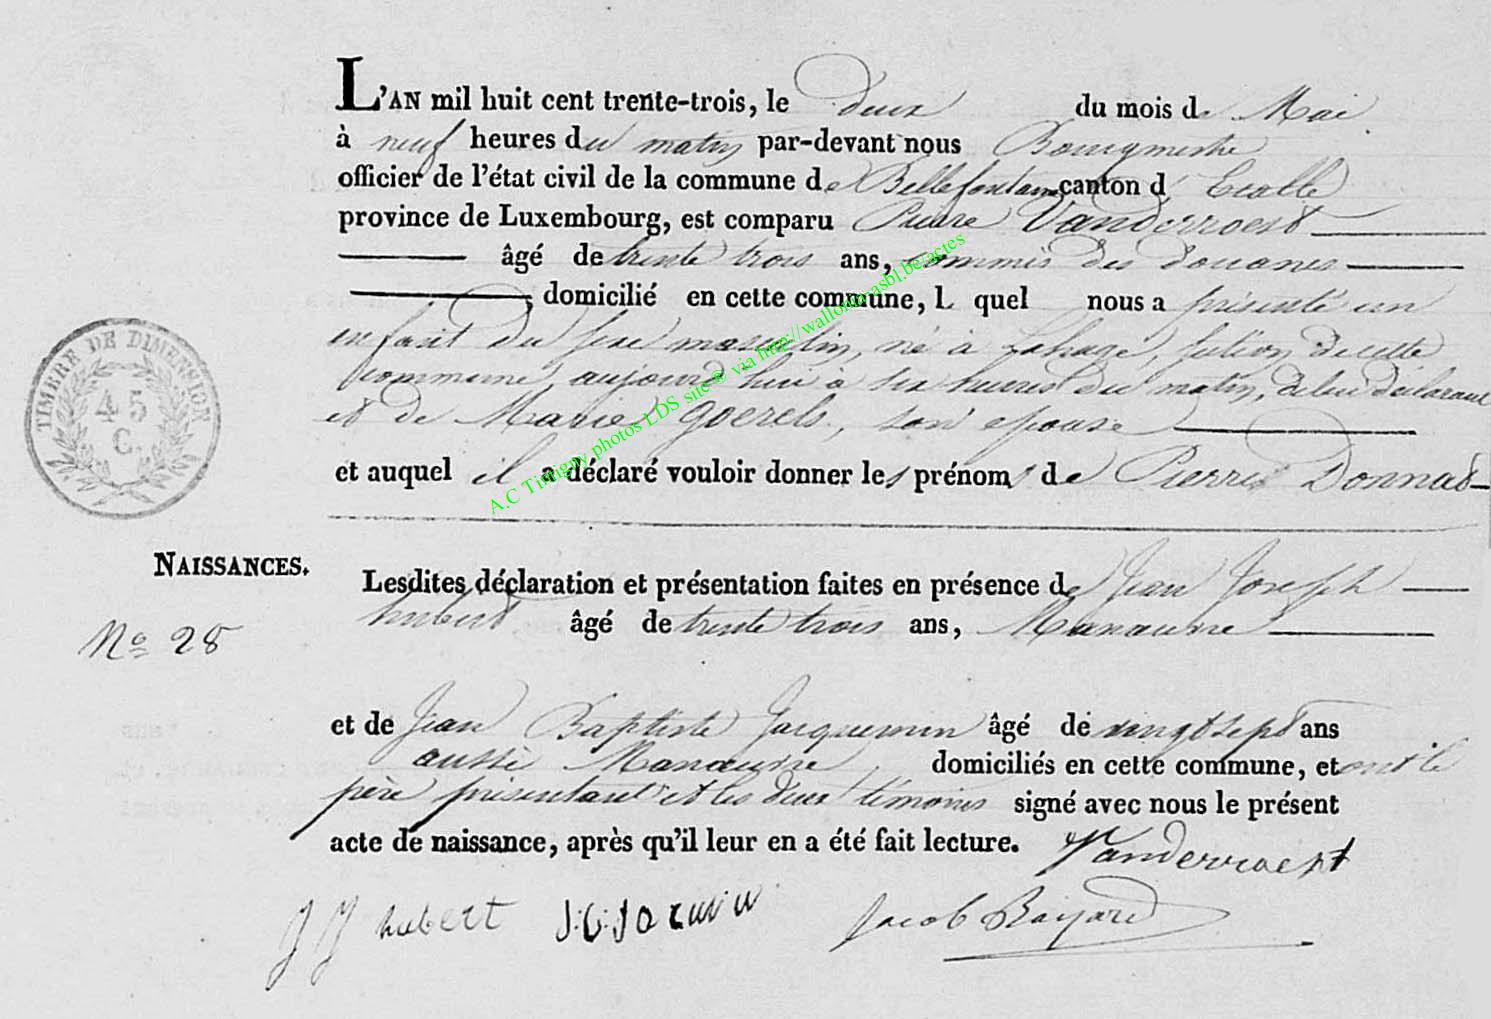 L'AN mil huit cent trente-trois, le deux du mois de Mai
à neuf heures du matin par-devant nous Bourgmestre
officier de l'état civil de la commune de Bellefontaine canton d'Etalle
province de Luxembourg, est comparu Pierre Vanderroest
âgé de trente trois ans, commis des douanes
domicilié en cette commune, L quel nous a présenté un
enfant du sexe masculin, né à Lahage, section de cette
commune, aujourd'hui à six heures du matin, de lui déclarant
et de Marie Goerels, son épouse
et auquel il a déclaré vouloir donner les prénoms de Pierre Donnat
TIMBRE DE DIMENSION
45
C.
NAISSANCES.
No 28
Lesdites déclaration et présentation faites en présence de Jean Joseph
hubert âgé de trente trois ans, Manœuvre
et de Jean Baptiste Jacquemin âgé de vingt sept ans
aussi Manœuvre domiciliés en cette commune, et ont le
père présentant et les deux témoins signé avec nous le présent
acte de naissance, après qu'il leur en a été fait lecture. Vanderroest
J J hubert Jacob Bayard
A.C Tintigny photos LDS site® via http://wallonia.asbl.be.actes